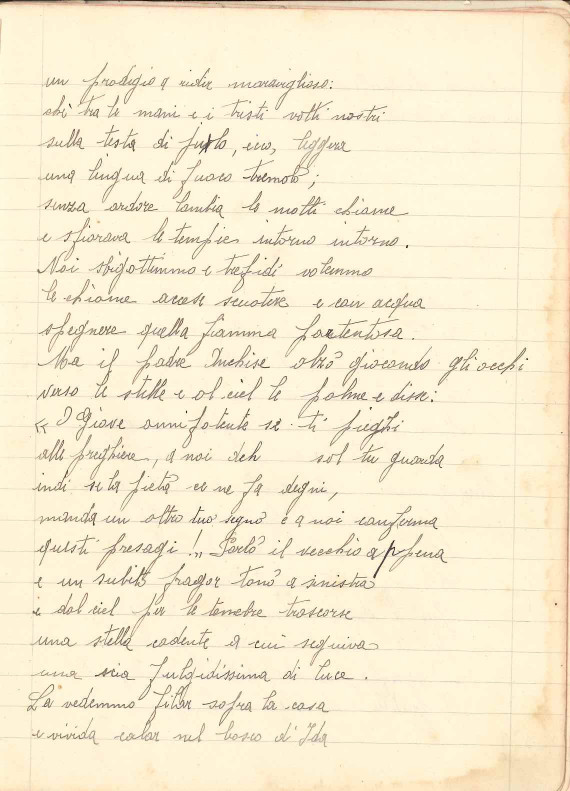 un prodigio a ridir maraviglioso:
chè tra le mani e i tristi volti nostri
sulla testa di Julo, ecco, leggera
una lingua di fuoco tremolò;
senza ardore lambia le molli chiome
e sfiorava le tempie intorno intorno.
Noi sbigottimmo e trepidi volemmo
le chiome accese scuotere e con acqua
spegnere quella fiamma portentosa.
Ma il padre Anchise alzò giocondo gli occhi
verso le stelle e al ciel le palme e disse:
« O Giove onnipotente se ti pieghi
alle preghiere, a noi deh sol tu guarda
indi se la pietà ce ne fa degni,
manda un altro tuo segno e a noi conferma
questi presagi!,, Parlò il vecchio appena
e un subito fragor tonò a sinistra
e dal ciel per le tenebre trascorse
una stella cadente a cui seguiva
una scia fulgidissima di luce.
La vedemmo filar sopra la casa
e vivida calar nel bosco d'Ida